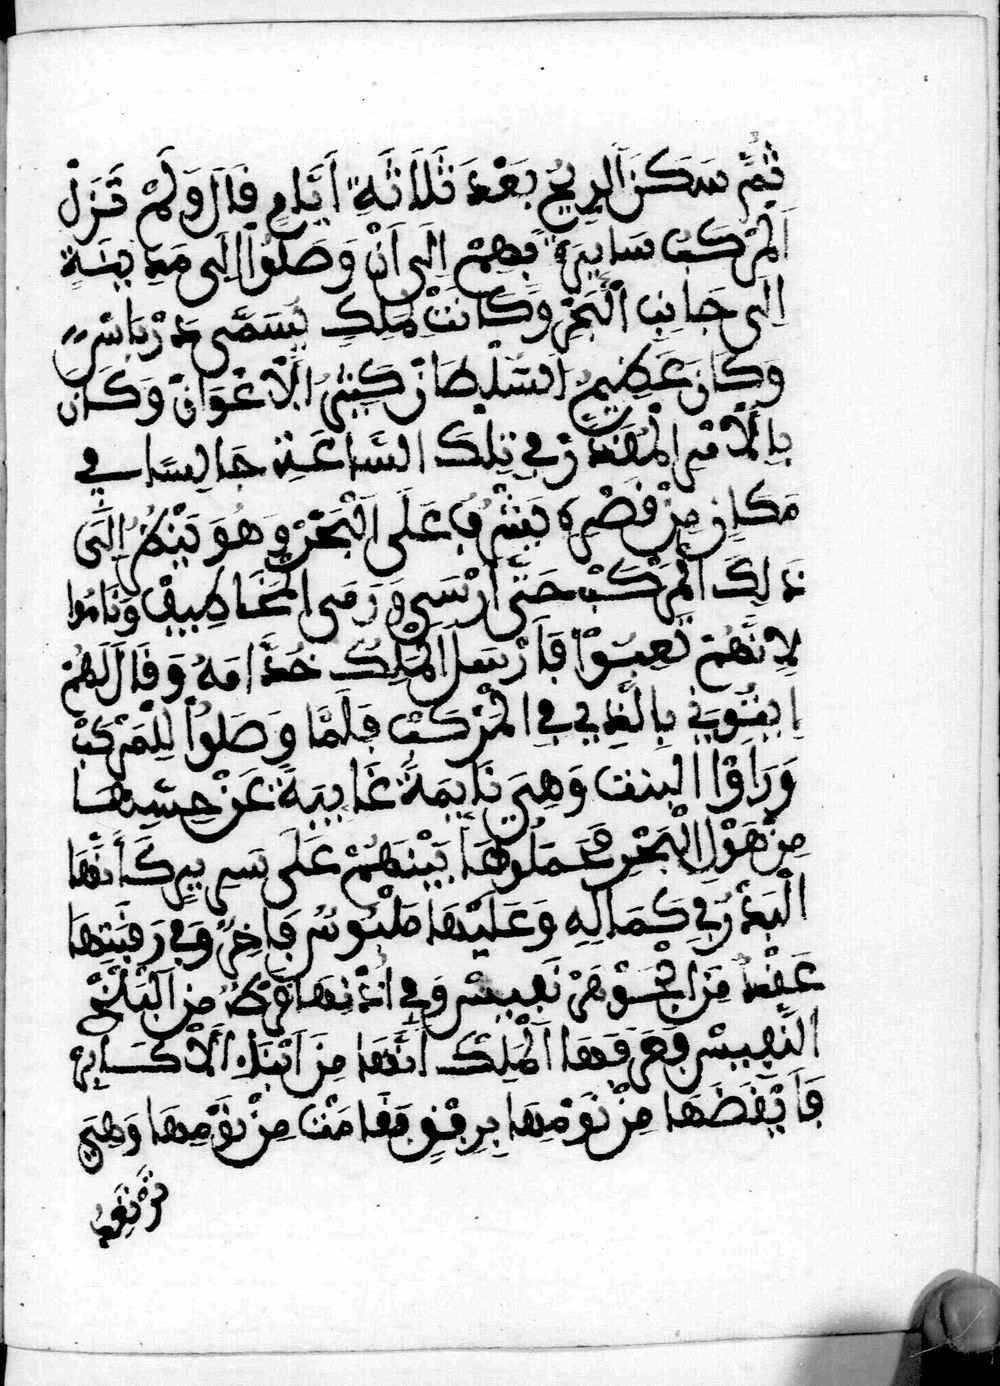 ثُمَّ سَكَنَ الرِيحُ بَعْدَ ثَلَاثَةِ أَيَّامٍ قَالَ وَلَمْ تَزَلْ
الْمَرْكَبُ سَايِرَةً بِهِمْ إِلَى أَنْ وَصَلُوا إِلَى مَدِينَةٍ
إِلَى جَانِبِ الْبَحْرِ وَكَانَتْ لِمَلِكٍ يُسَمَّى دَرْبَاسْ
وَكَانَ عَظِيمُ السُّلْطَانْ كَثِيرُ الْأَعْوَانْ وَكَانَ
بِالْأَمْرِ الْمُقَدَّرْ فِي تِلْكَ السَّاعَةِ جَالِسًا فِي
مَكَانٍ مِنْ قَصْرِهِ يَشْرُفُ عَلَى الْبَحْرْ وَهُوَ يَنْظُرُ إِلَى
ذَلِكَ الْمَرْكَبْ حَتَّى أَرْسَى وَرَمَى الْمَخَاطِيفْ وَنَامُوا
لِأَنَّهُمْ تَعِبُوا فَأَرْسَلَ الْمَلِكُ خُدَّامَهُ وَقَالَ لَهُمْ
ايتُونِي بِالَّذِي فِي الْمَرْكَبْ فَلَمَّا وَصَلُوا لِلْمَرْكَبْ
وَرَاوْا الْبِنْتَ وَهِيَ نَايِمَةً غَايِبَةً عَنْ حِسِّهَا
مِنْ هَوْلِ الْبَحْرِ فَحَمَلُوهَا بَيْنَهُمْ عَلَى سَرِيرٍ كَأَنَّهَا
الْبَدْرُ فِي كَمَالِهِ وَعَلَيْهَا مَلْبُوسٌ فَاخِرٌ وَفِي رَقَبَتِهَا
عَقْدٌ مِنَ الْجَوْهَرْ نَفِيسْ وَفِي أُذْنِهَا قُرْطٌ مِنَ الْبَلْخَشْ
النَّفِيسْ فَعَرَفَهَا الْمَلِكْ أَنَّهَا مِنْ أَبْنَاءِ الْأَكَاسِرَ
فَأَيْقَضَهَا مِنْ نَوْمِهَا بِرِفْقٍ فَقَامَتْ مِنْ نَوْمِهَا وَهِيَ
تَرْتَعِدُ